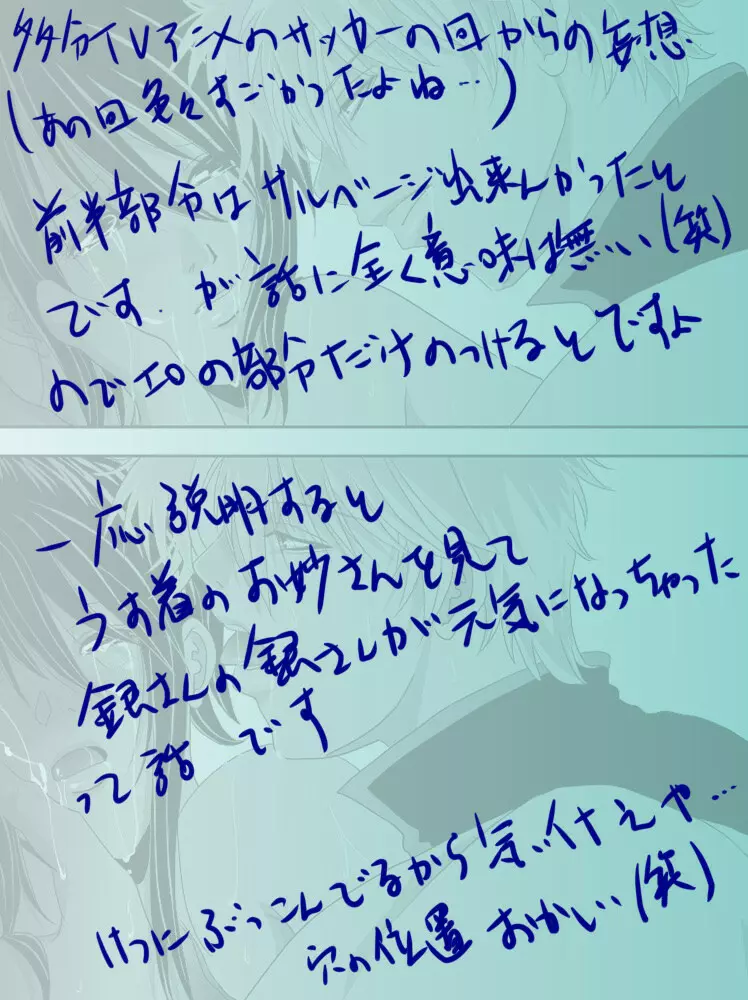 多分TVアニメのサッカーの回からの妄想
(あの回色々すごかったよね…)
前半部分はサルベージ出来んかったんと
です.が話に全く意味は無い(笑)
のでエロの部分だけのっけるとですよ
一応説明すると
うす着のお妙さんを見て
銀さんの銀さんが元気になっちゃった
って話です
けつにぶっこんでるから気ぃ付えや…
穴の位置おかしい(笑)